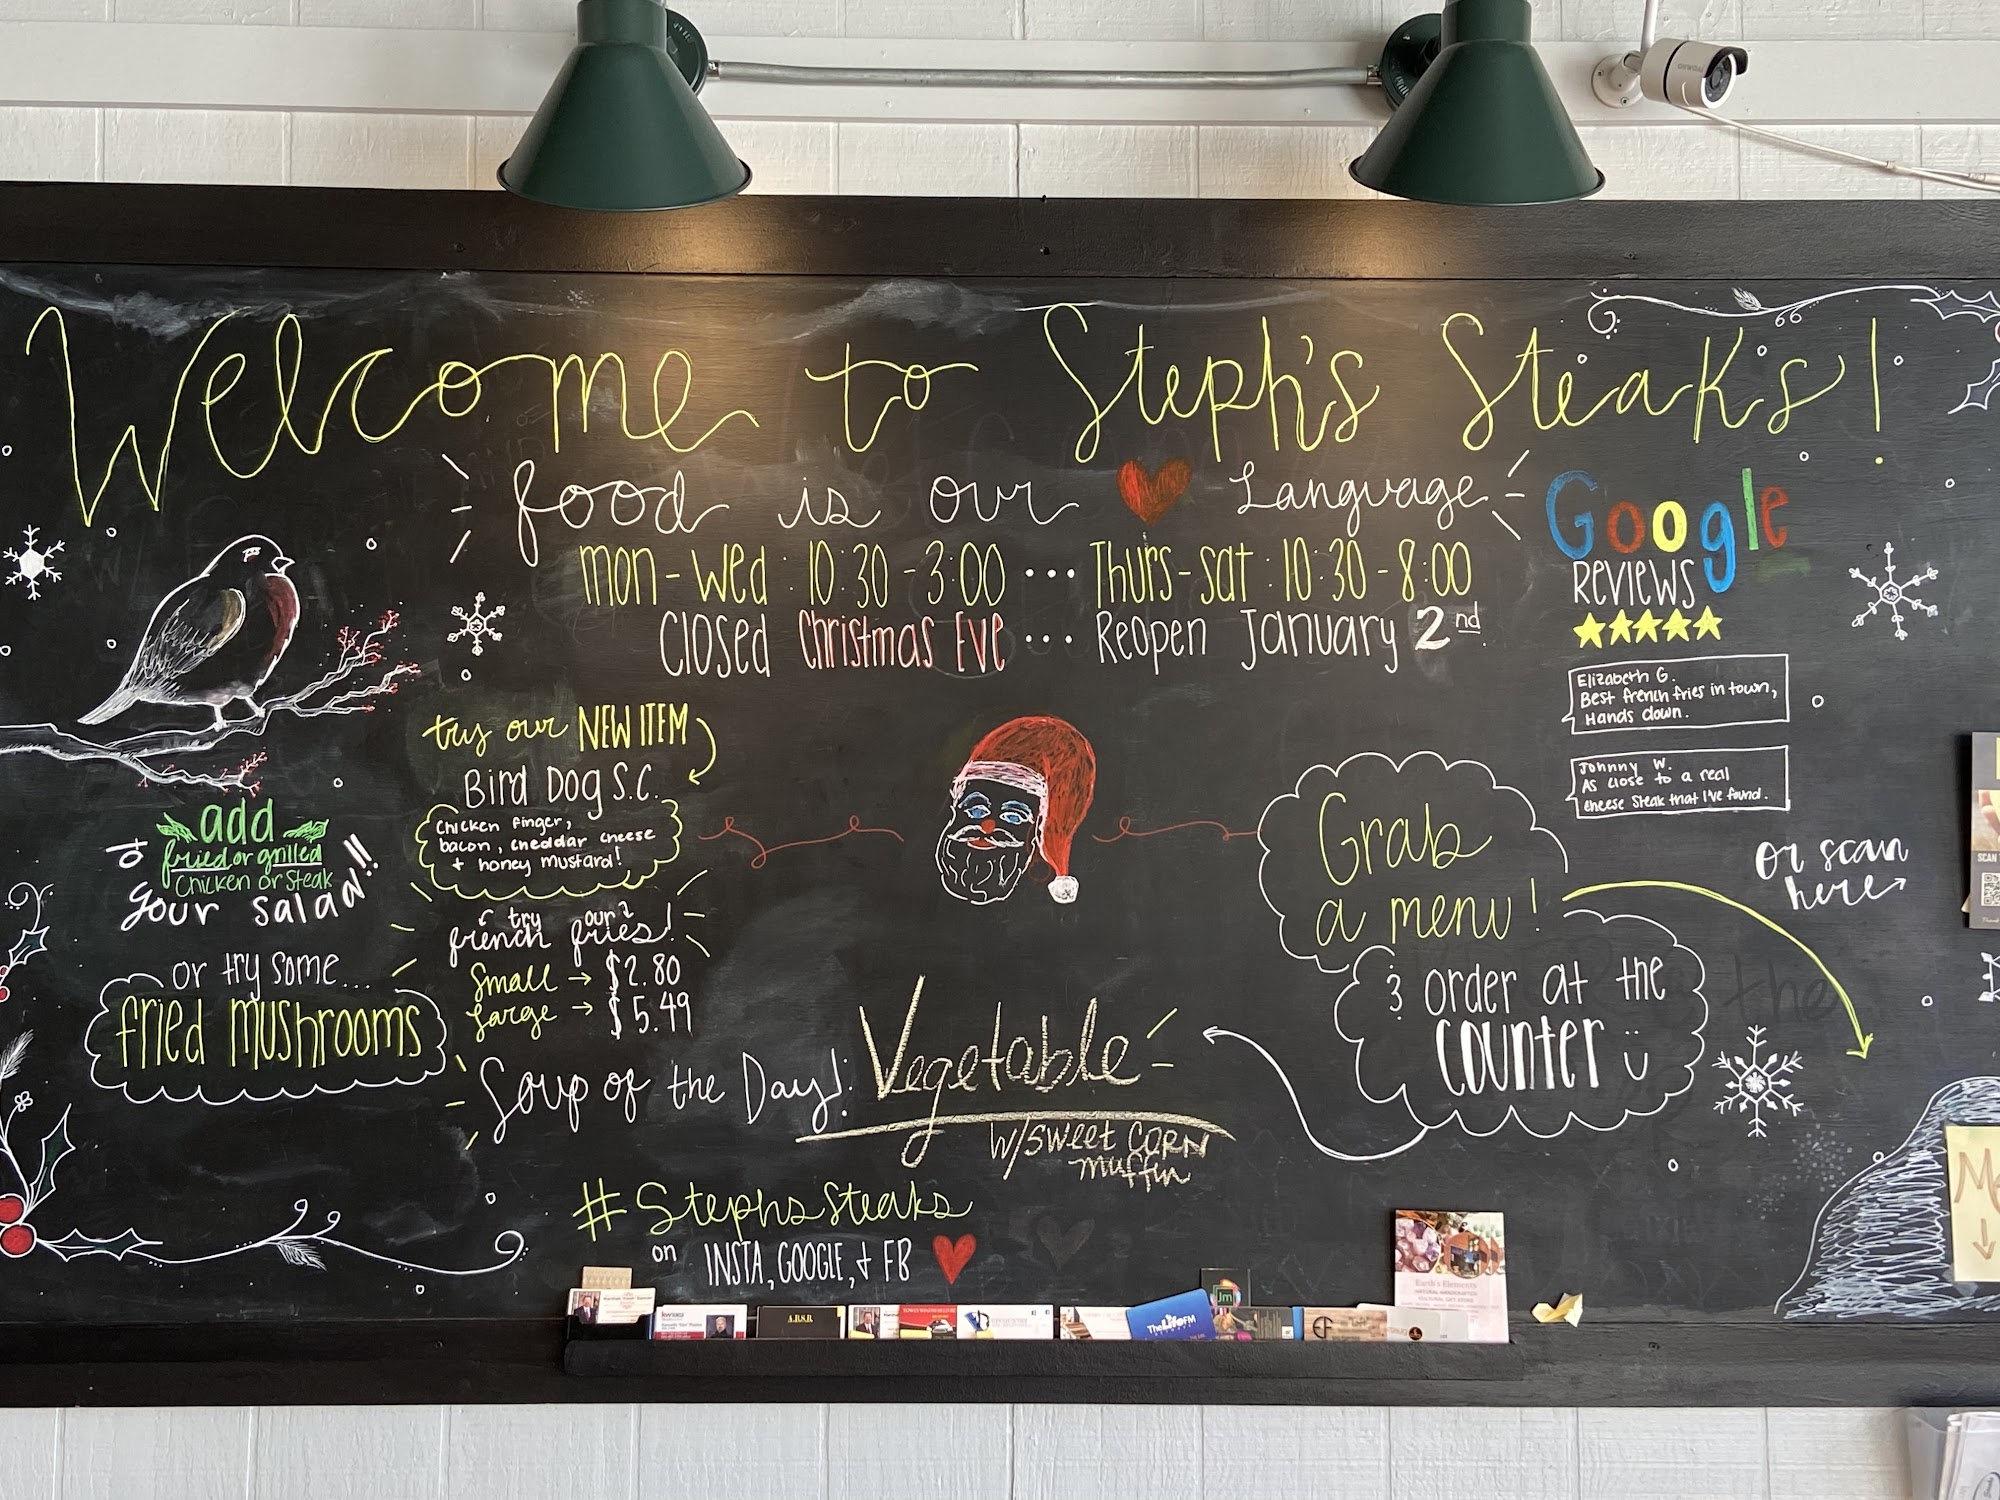 Welcome to Steph's Steaks!
food is our Language
Mon-Wed: 10:30-3:00 ... Thurs-Sat: 10:30-8:00
Closed Christmas Eve ... Reopen January 2nd
Google
REVIEWS
Elizabeth G.
Best french fries in town,
Hands down.
Johnny W.
As close to a real
cheese steak that I've found.
or scan
here
SCAN
try our NEW ITEM
Bird Dog S.C.
Chicken finger,
bacon, cheddar cheese
+ honey mustard!
add
fried or grilled
Chicken or Steak
to your salad!!
or try some...
fried mushrooms
try our
french fries!
Small → $2.80
Large → $5.49
Grab
a menu!
& order at the
counter
Soup of the Day!: Vegetable
w/sweet CORN
muffin
#StephsSteaks
on INSTA, GOOGLE, + FB
A.B.S.B.
TheLifeFM
Jm
EF
Earth's Elements